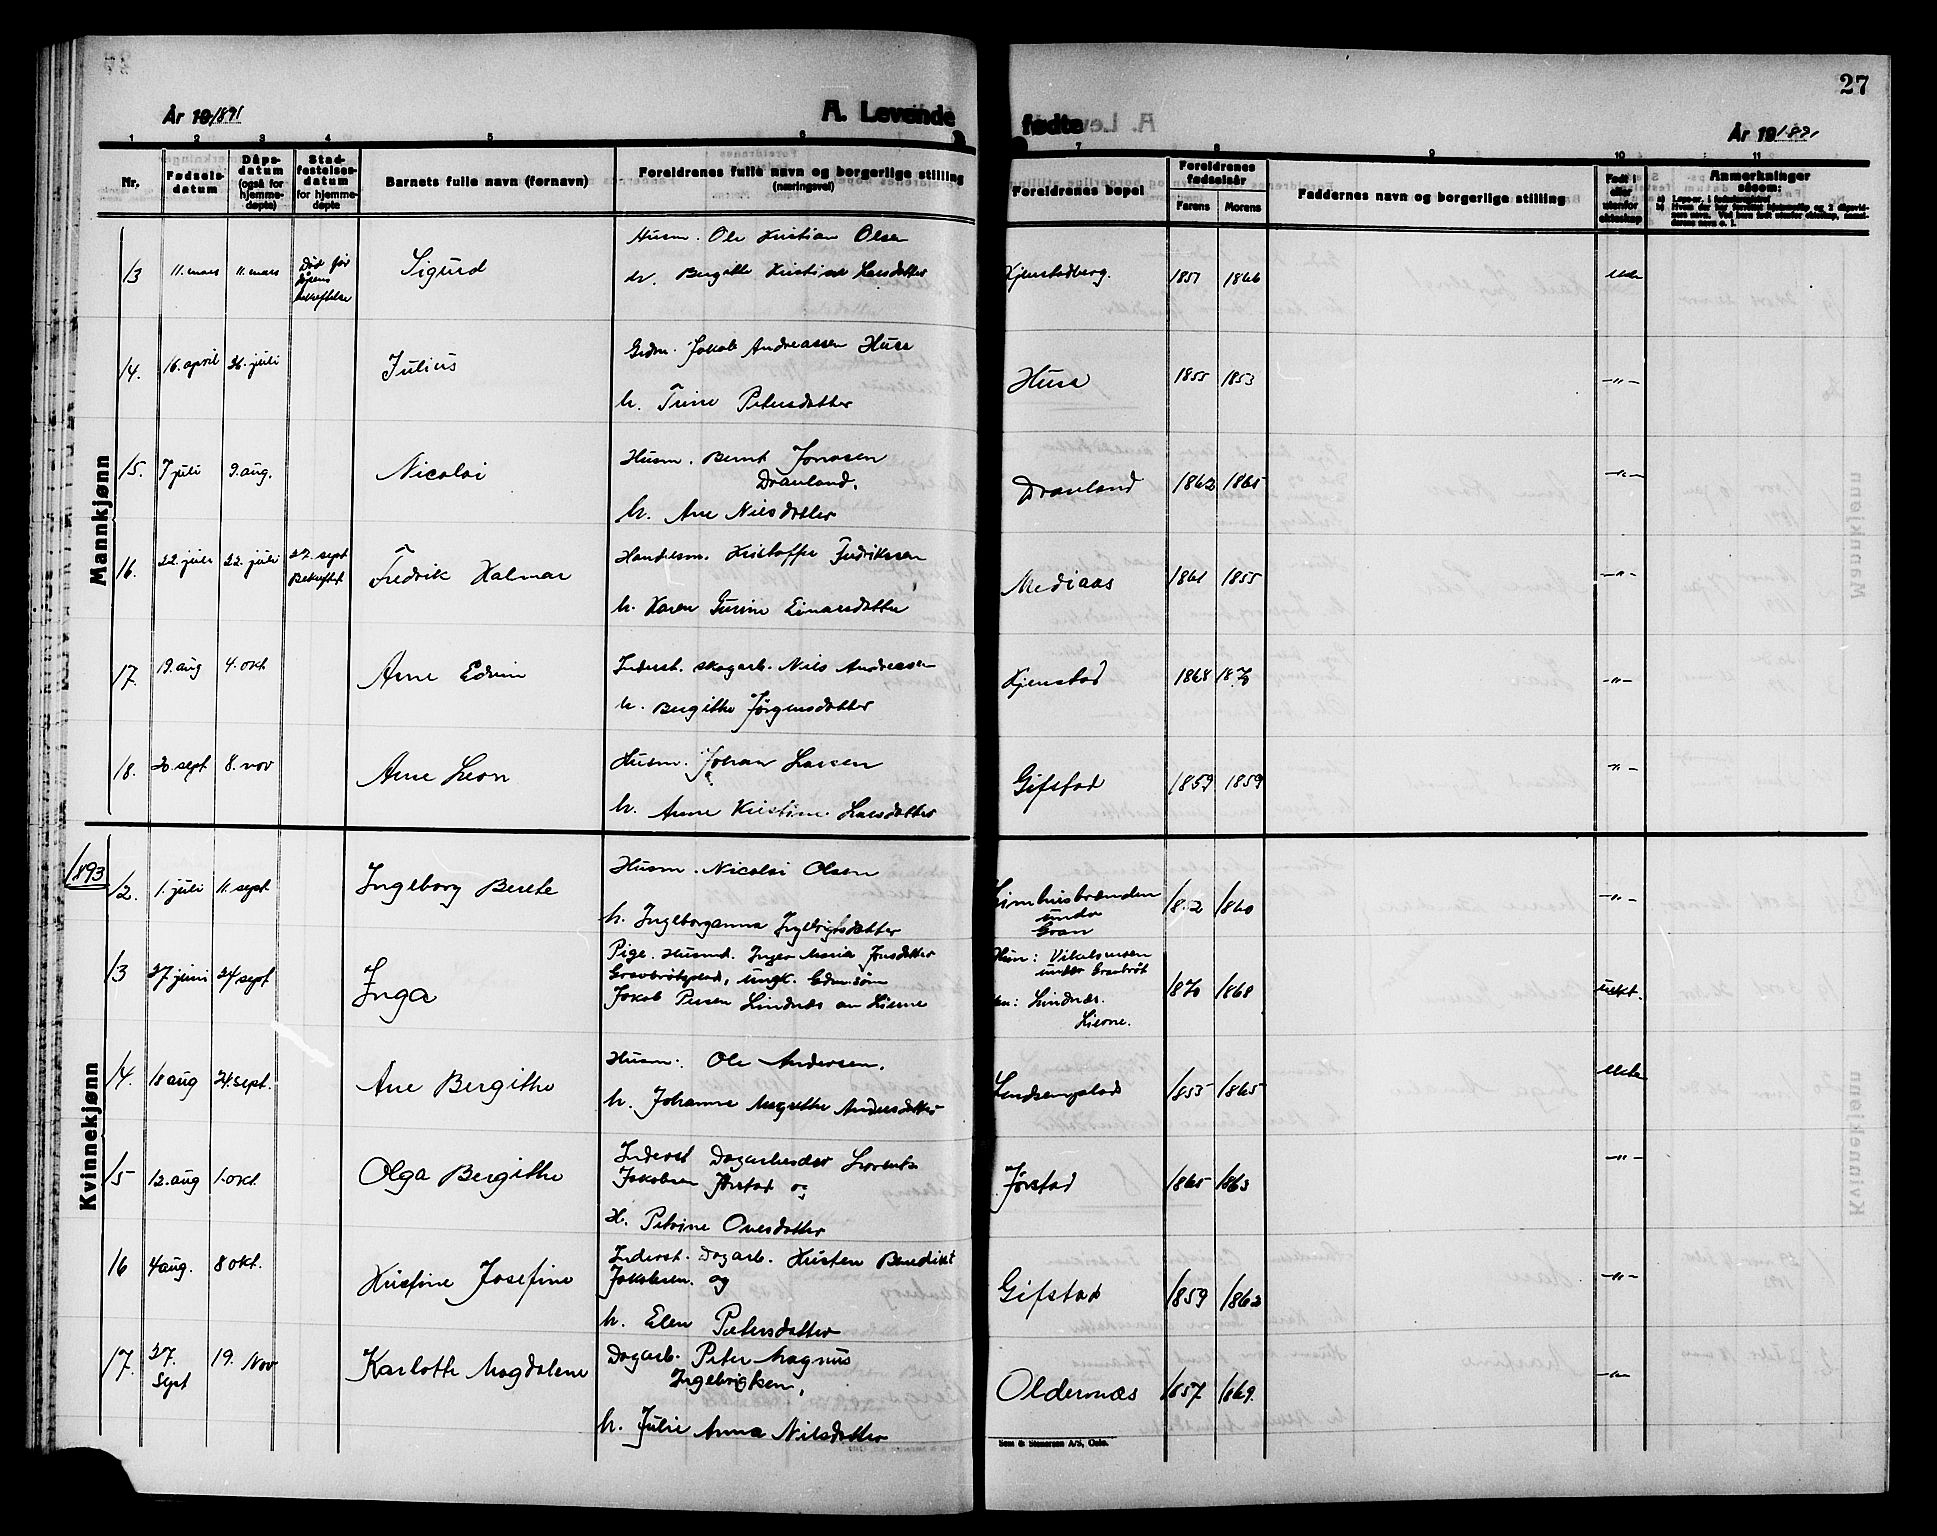 27
År 19 1891
A. Levende
fødte
År 19 1891
1 2 3 4 5 6 7 8 9 10 11
Nr.
Fødsels-
datum
Dåps-
datum
(også for
hjemme-
døpte)
Stad-
festelses-
datum
for hjemme-
døpte
Barnets fulle navn (fornavn)
Foreldrenes fulle navn og borgerlige stilling
(næringsvei)
Foreldrenes bopel
Foreldrenes
fødselsår
Farens
Morens
Faddernes navn og borgerlige stilling
Født i
eller
utenfor
ekteskap
Anmerkninger
såsom:
Mannkjønn
13 11. mars 11. mars Død før
Sigurd
Husm. Ole Kristian Olsen
h. Bergitte Kristine Larsdatter
Kjenstadberg. 1857 1866 ekte
14. 16. april 26. juli
Julius
Gdm. Jakob Andreassen Husa
h. Trine Petersdatter
Husa 1855 1853 -"-
15. 7 juli 9. aug.
Nicolai
Husm. Bernt Jonasen
Dranland.
h. Ane Nilsdatter
Dranland 1862 1865 -"-
16. 22. juli 22. juli 27. sept
Bekreftet
Fredrik Halmar
Handelsm. Kristoffer Fredriksen
h. Karen Turine Einarsdatter
Mediaas 1861 1855 -"-
17. 19. aug 4. okt
Arne Edvin
Inderst. skogarb. Nils Andreasen
h. Bergithe Jørgensdatter
Kjenstad 1868 1870 -"-
18. 20. sept 8. nov
Arne Leon
Husm. Johan Larsen
h. Anne Kristine Larsdatter
Gifstad 1859 1859 -"-
1893
Kvinnekjønn
12. 1. juli 11. sept
Ingeborg Berete
Husm. Nicolai Olsen
h. Ingeborganna Ingebrigtsdatter
Limhusbrænden
under
Gran
1860 -"-
13 27 juni 24 sept
Inga
Pige. Husmd. Inger Maria Jonsdatter
Gravbrøtplad, ungk. Gdm.søn
Jakob Persen Lindnæs av Lierne
Hun: Vikelsmoen
under Gravbrøt
Han: Lindnæs.
Lierne.
1870 1868 uekt.
14. 18 aug 24. sept.
Ane Bergithe
Husm: Ole Andersen.
h. Johanna Margrethe Andersdatter
Lindsemplad 1855 1865 ekte
15 12. aug 1. okt
Olga Bergithe
Inderst Dagarbeider Lorents
Jakobsen Jørstad og
H. Petrine Ovesdatter
Jørstad 1865 1863 -"-
16 4 aug. 8 okt.
Kristine Josefine
Inderst. Dagarb. Kristen Benedikt
Jakobsen. og
h. Elen Petersdatter
Gifstad 1859 1862 -"-
17. 27.
Sept
19. Nov
Karlotte Magdalene
Dagarb. Peter Magnus
Ingebrigtsen,
h. Julie Anna Nilsdatter
Oldernæs 1857 1869. -"-
Sem & Stenersen A/S, Oslo.